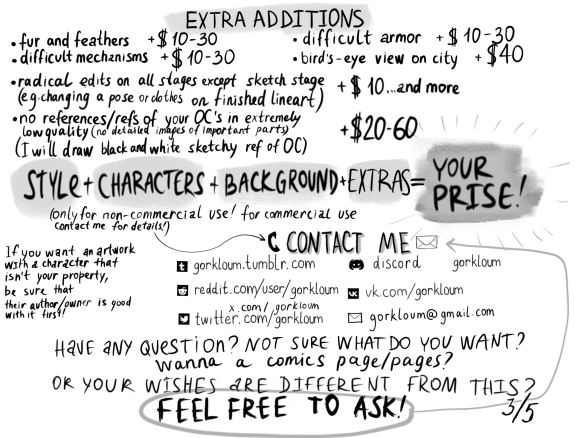 EXTRA ADDITIONS
• fur and feathers +$10-30
• difficult armor +$10-30
• difficult mechanisms +$10-30
• bird's-eye view on city +$40
• radical edits on all stages except sketch stage
(e.g. changing a pose or clothes on finished lineart)
+$10...and more
• no references/refs of your OC's in extremely
low quality (no detailed images of important parts)
(I will draw black and white sketchy ref of OC)
+$20-60
STYLE+CHARACTERS+BACKGROUND+EXTRAS=
YOUR
PRISE!
(only for non-commercial use! for commercial use
contact me for details!)
CONTACT ME
If you want an artwork
with a character that
isn't your property,
be sure that
their author/owner is good
with it first!
gorkloum.tumblr.com
discord gorkloum
reddit.com/user/gorkloum
vk.com/gorkloum
x.com/gorkloum
twitter.com/gorkloum
gorkloum@gmail.com
HAVE ANY QUESTION? NOT SURE WHAT DO YOU WANT?
wanna a comics page/pages?
OR YOUR WISHES ARE DIFFERENT FROM THIS?
FEEL FREE TO ASK!
3/5